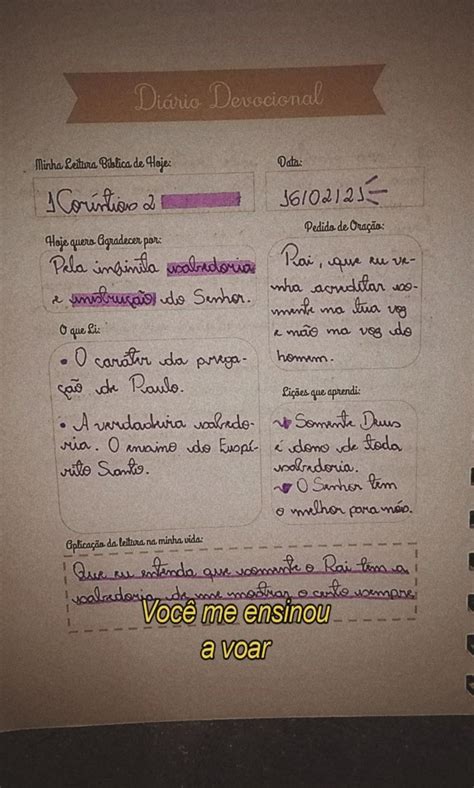 Diário Devocional
Minha Leitura Bíblica de Hoje:
Data:
1 Coríntios 2
16/02/21
Hoje quero Agradecer por:
Pela infinita sabedoria
e instrução do Senhor.
Pedido de Oração:
Pai, que eu ve-
nha acreditar so-
mente na tua voz
e não na voz do
homem.
O que Li:
• O caratér da prega-
ção de Paulo.
• A verdadeira sabedo-
ria. O ensino do Espí-
rito Santo.
Lições que aprendi:
Somente Deus
é dono de toda
sabedoria.
O Senhor tem
o melhor para nós.
Aplicação da leitura na minha vida:
Que eu entenda que somente o Pai tem a
sabedoria de me mostrar o certo sempre
Você me ensinou
a voar